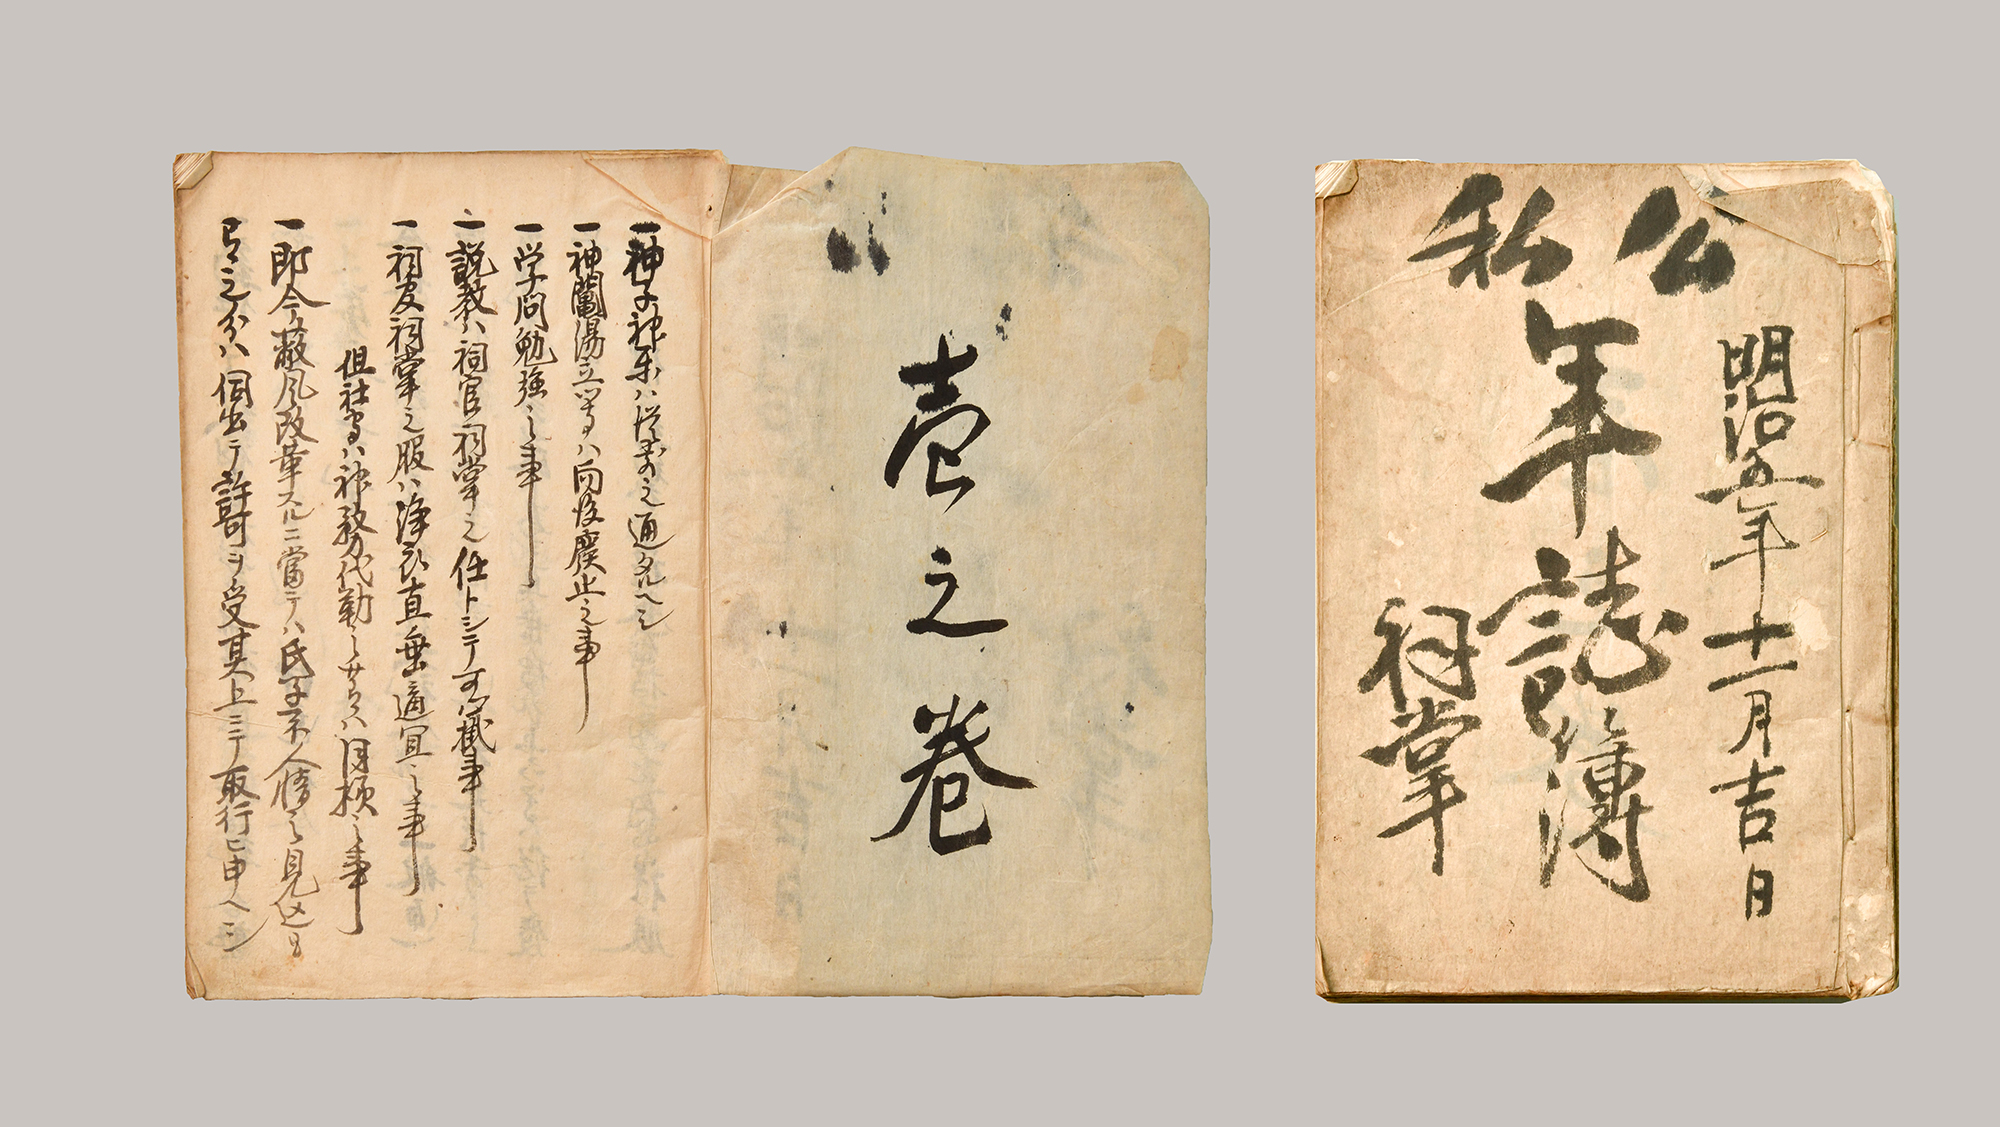 公私
明治五年十一月吉日
年誌簿
祠掌
壱之巻
一神子神楽ハ従前之通タルヘシ
一神闈湯立等ハ向後廃止之事
一学問勉強之事
一説教ハ祠官祠掌之任トシテ可心掛事
一祠官祠掌之服ハ浄衣直垂適宜之事
但社寺ハ神務代勤之せつハ同様之事
一即今弊風改革スルニ當テハ氏子不人情之見込も
有之分ハ伺出テ許可ヲ受其上ニテ取行ヒ申ヘシ